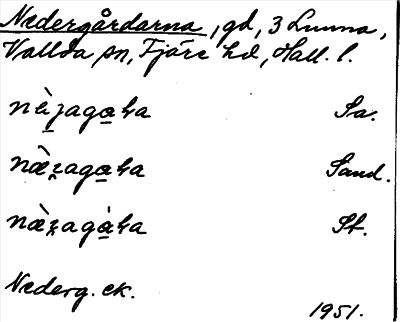 Nedergårdarna, gd, 3 Lunna,
Vallda sn, Fjäre hd, Hall. l.
næ̀ʒaga̱ɦa Sa.
næ̀ʒaga̱ɦa Sand.
næ̀ʒagàɦa St.
Nederg. ek.
1951.